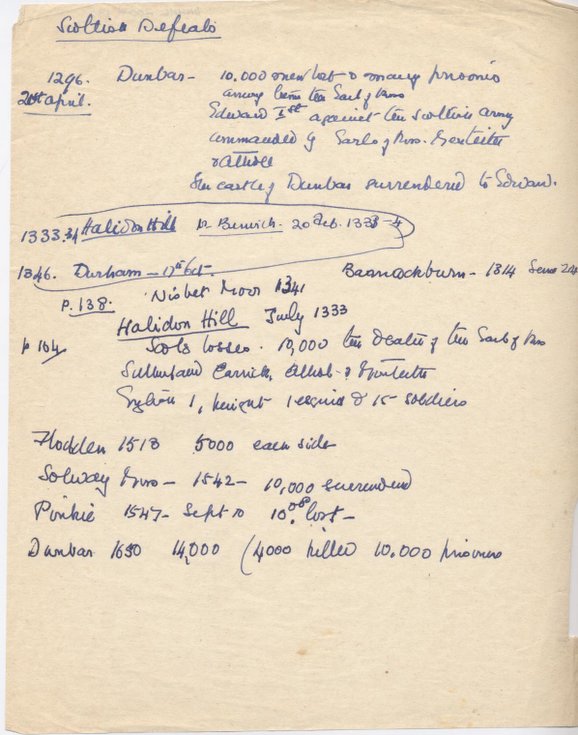 Scottish Defeats
1296. Dunbar - 10.000 men lost & many prisoners
21st april. among them the Earl of Ross
Edward Ist against the Scottish army
commanded by Earls of Ross. Menteith
& Atholl
The castle of Dunbar surrendered to Edward.
1333.34 Halidon Hill nr Berwick - 20 Feb. 1333-4
1346. Durham - 17th Oct. Bannockburn - 1314 June 24
p. 138. Nisbet Moor 1341
Halidon Hill July 1333
p 164 Scots losses. 10,000 the Death of the Earls of Ross
Sutherland Carrick, Atholl & Menteith
English 1, knight 1 esquire & 15 soldiers
Flodden 1513 5000 each side
Solway Moss - 1542 - 10,000 surrendered
Pinkie 1547 - Sept 10 10.000 lost -
Dunbar 1650 14,000 (4000 killed 10.000 prisoners